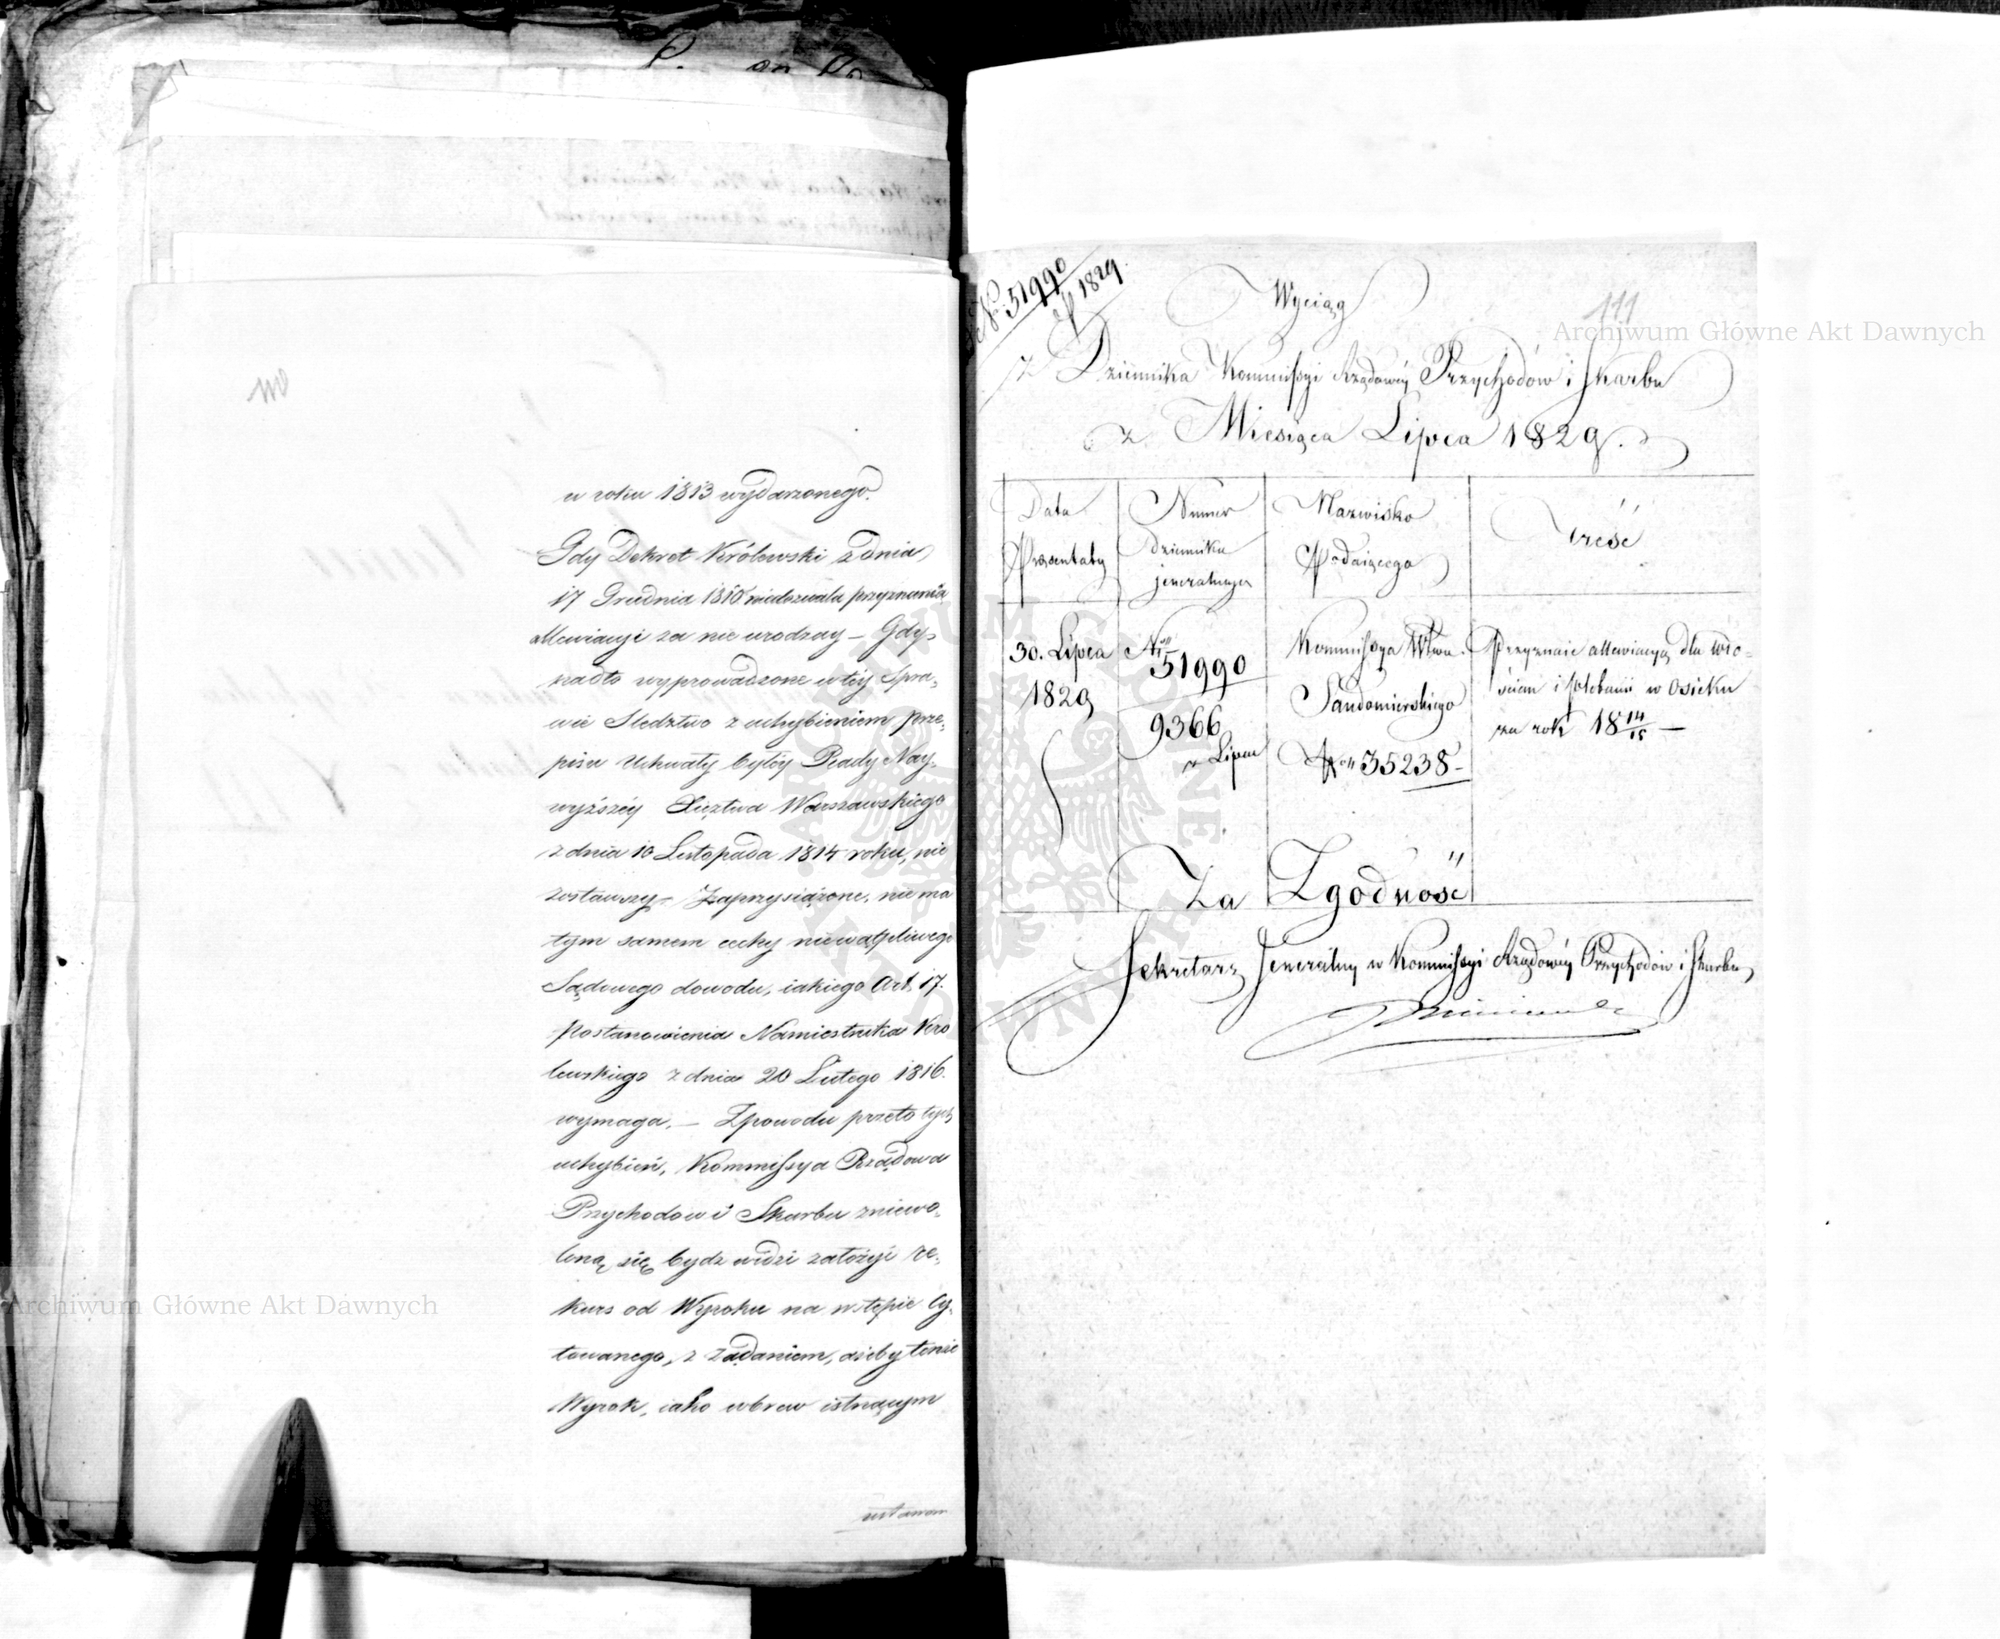 w roku 1813 wydarzonego.
Gdy Dekret Królewski z dnia
17 Grudnia 1810 niedozwala przyznania
allewiacyi za nie urodzay – Gdy
nadto wyprowadzone w téy Spra„
wie Sledztwo z uchybieniem prze„
pisu Uchwały byłéy Rady Nay„
wyższéy Xięztwa Warszawskiego
z dnia 10 Listopada 1814 roku, nie
zostawszy zaprzysiężone, nie ma
tym samem cechy niewątpliwego
Sądowego dowodu, iakiego Art. 17.
Postanowienia Namiestnika Kró
lewskiego z dnia 20 Lutego 1816.
wymaga. – Z powodu przeto tych
uchybień, Kommissya Rządowa
Przychodów i Skarbu zniewo„
loną się bydz widzi założyć re„
kurs od Wyroku na wstępie cy„
towanego, z żądaniem, ażeby tenże
Wyrok, iako wbrew istnącym
ustawom
N. 51990
1829
111
Wyciąg
z Dziennika Kommissyi Rządowéy Przychodów i Skarbu
z Miesiąca Lipca 1829.
Data Prezentaty
Numer dziennika jeneralnego
Nazwisko Podaiącego
Treść
30. Lipca
1829
Nro 51990
9366
z Lipca
Kommissya Wtwa
Sandomierskiego
Nro 35238 –
Przyznaie allewiacyą dla wło–
ścian i plebanii w Osieku
za rok 18 14/15 –
Za Zgodność
Sekretarz Jeneralny w Kommissyi Rządowéy Przychodów i Skarbu
Archiwum Główne Akt Dawnych
Archiwum Główne Akt Dawnych